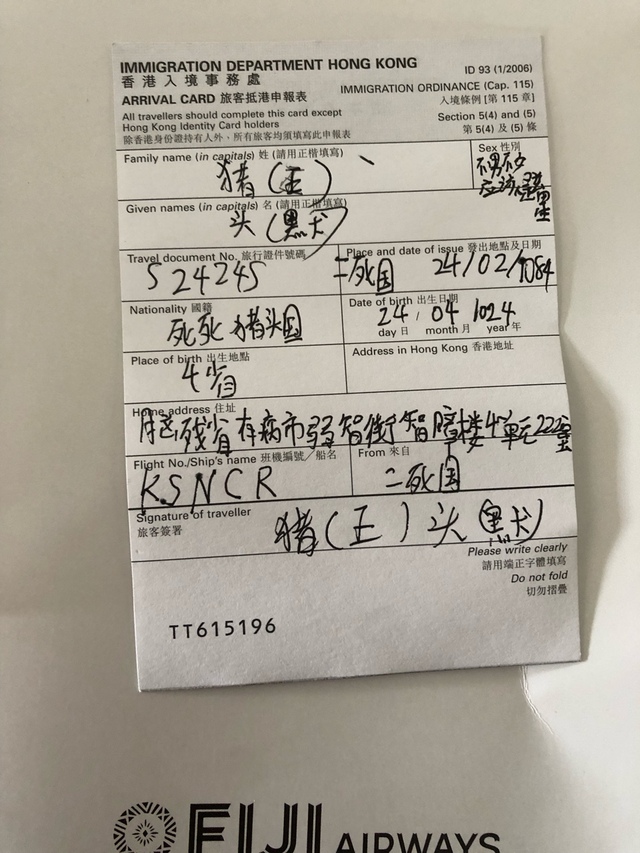 IMMIGRATION DEPARTMENT HONG KONG
ID 93 (1/2006)
香港入境事務處
IMMIGRATION ORDINANCE (Cap. 115)
ARRIVAL CARD 旅客抵港申報表
入境條例 [第 115 章]
All travellers should complete this card except
Section 5(4) and (5)
Hong Kong Identity Card holders
第 5(4) 及 (5) 條
除香港身份證持有人外、所有旅客均須填寫此申報表
Family name (in capitals) 姓 (請用正楷填寫)
猪(王)
Sex 性別
不男不女
应该是
Given names (in capitals) 名 (請用正楷填寫)
头(黑犬)
Travel document No. 旅行證件號碼
S24245
Place and date of issue 發出地點及日期
二死国 24/02/1084
Nationality 國籍
死死猪头国
Date of birth 出生日期
24/04/1024
day 日 month 月 year 年
Place of birth 出生地點
4省
Address in Hong Kong 香港地址
Home address 住址
残省有病市弱智街智障楼4单元222室
Flight No./Ship's name 班機編號/船名
KSNCR
From 來自
二死国
Signature of traveller
旅客簽署
猪(王)头(黑犬)
Please write clearly
請用端正字體填寫
Do not fold
切勿摺疊
TT615196
FIJI AIRWAYS